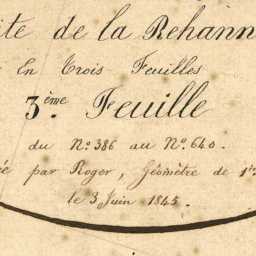 ite de la Rehann
En Trois Feuilles
3ème Feuille
du No. 386 au No. 640.
ée par Roger, Géomètre de 1re
le 3 Juin 1845.